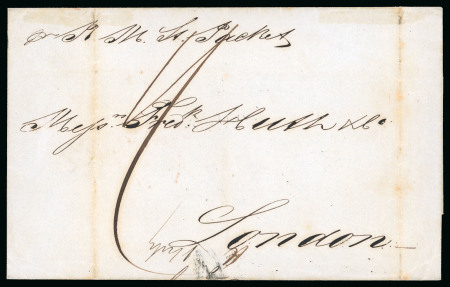 pr R. M. St. Packet
Messrs Fredk. Huth & Co
London